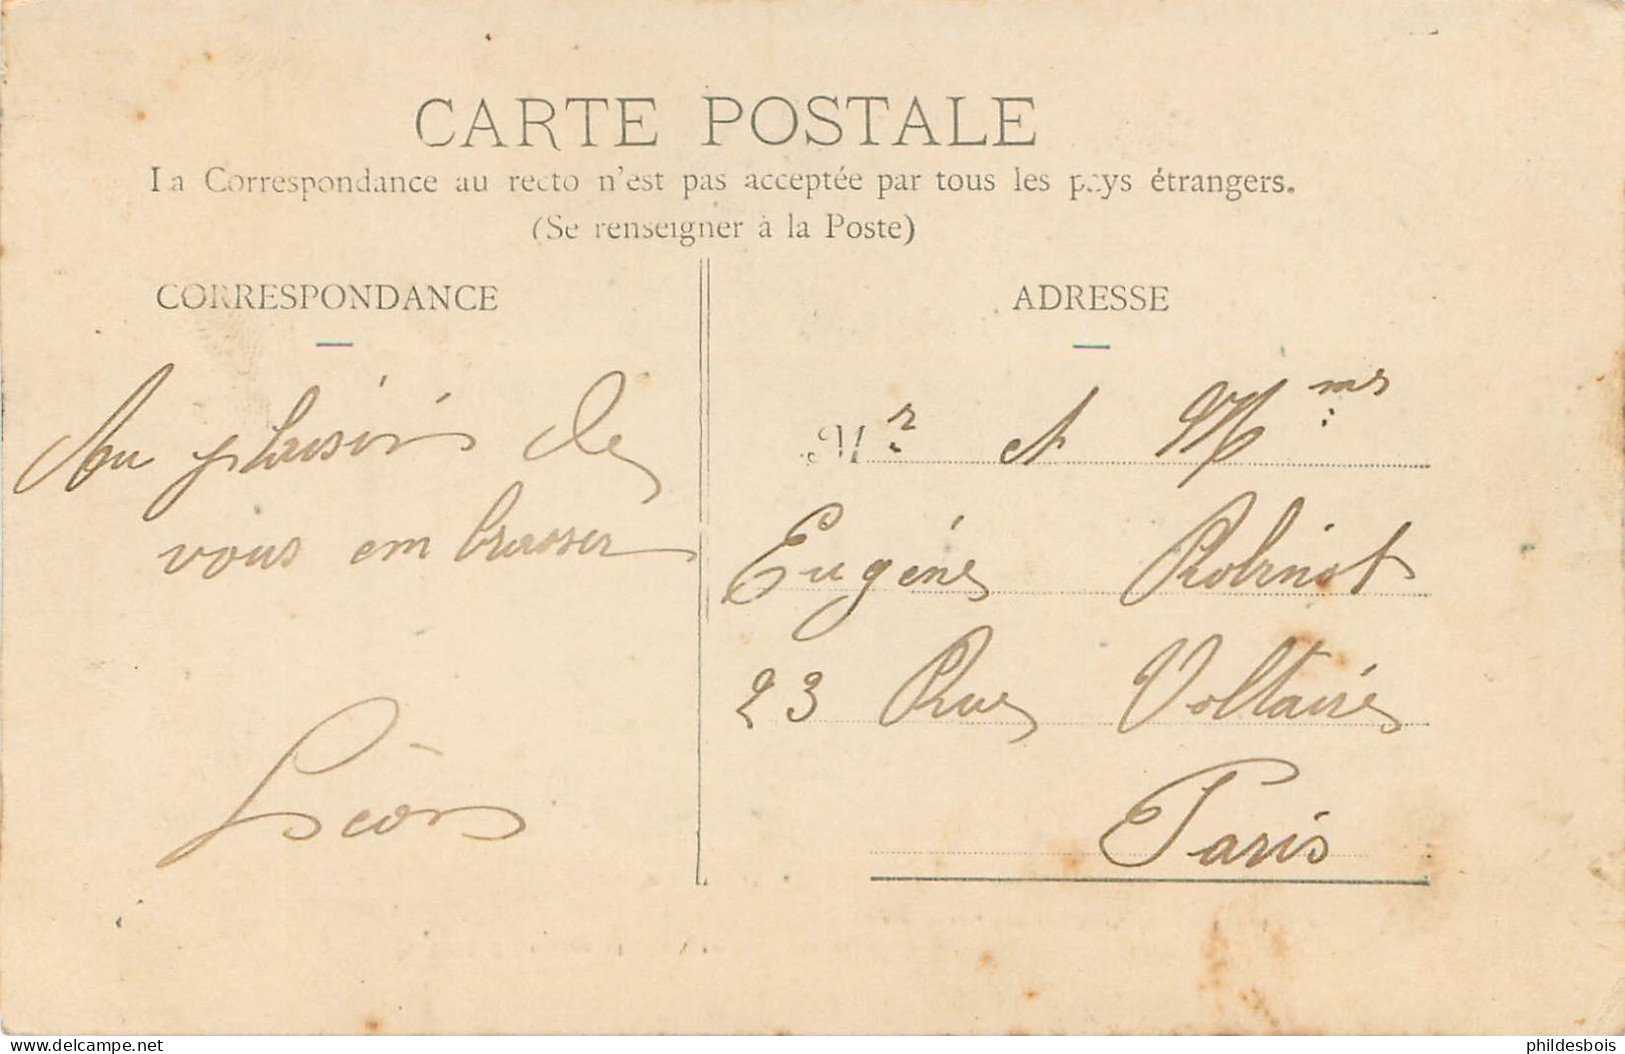 CARTE POSTALE
La Correspondance au recto n'est pas acceptée par tous les pays étrangers.
(Se renseigner à la Poste)
CORRESPONDANCE
Au plaisir de
vous embrasser
Léon
ADRESSE
Mr et Mme
Eugène Robinot
23 Rue Voltaire
Paris
delcampe.net
phildesbois